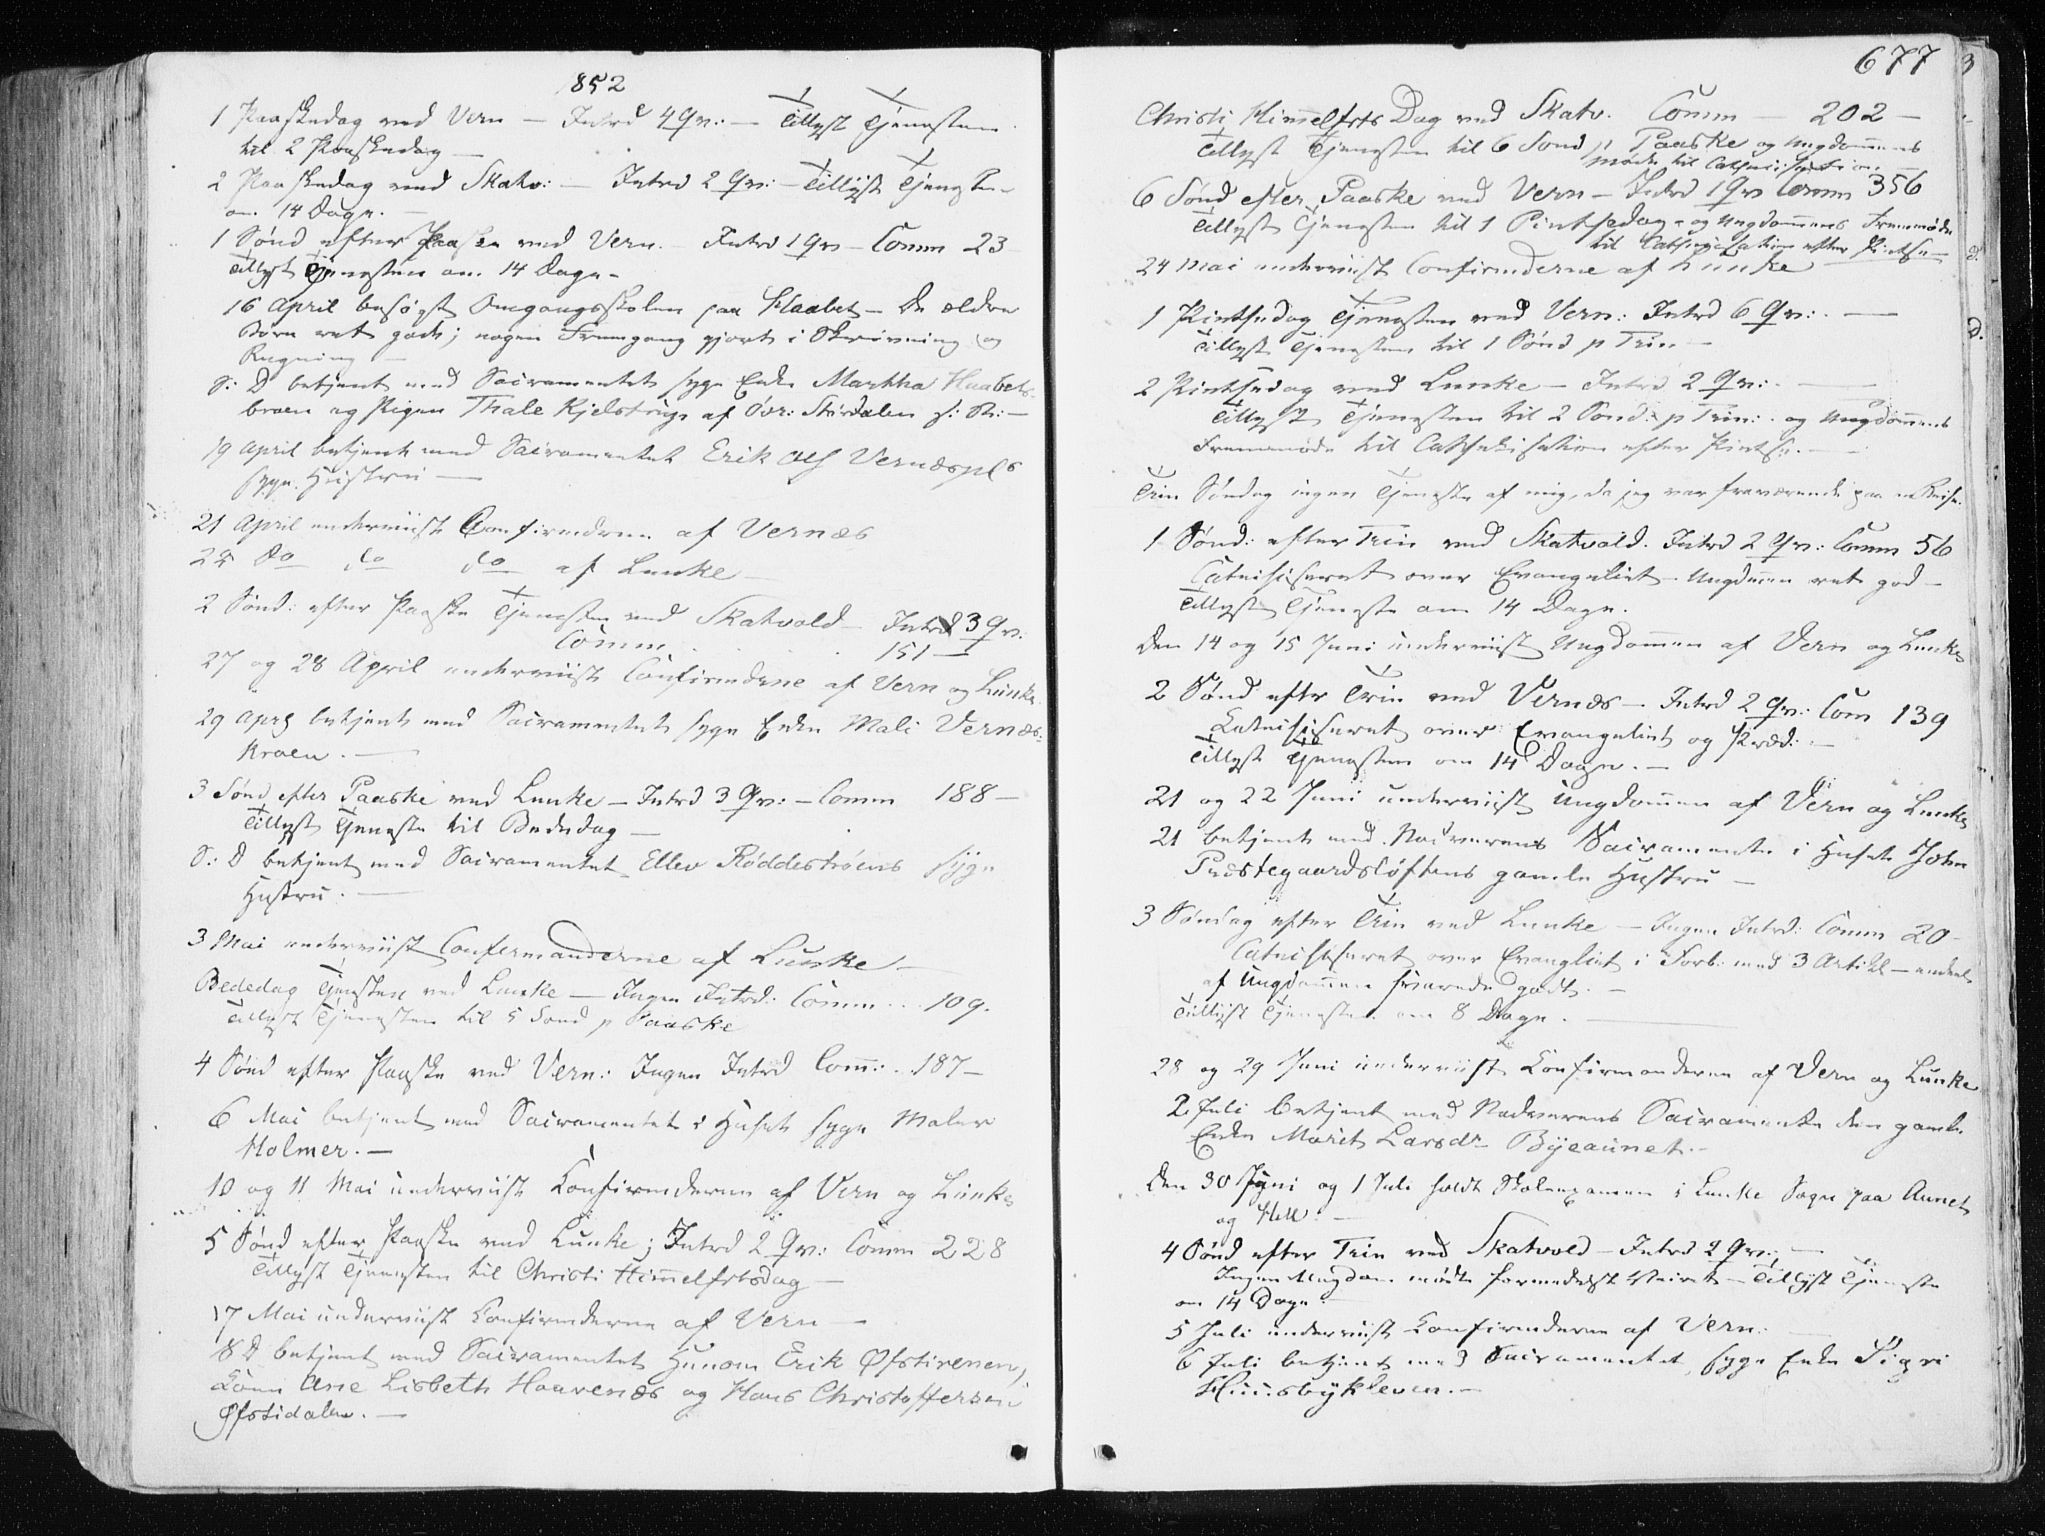 852
1 Paaskedag ved Vern — Introd 4 Qv: — Tillyst Tjenesten
til 2 Paaskedag —
2 Paaskedag ved Skatv: — Introd 2 Qv: — Tillyst Tjenesten
om 14 Dage. —
1 Sønd efter Paaske ved Vern. — Introd 1 Qv — Comm 23
Tillyst Tjenesten om 14 Dage —
16 April besøgt Omgangsskolen paa Haabet — De ældre
Børn ret godt; nogen Fremgang gjort i Skrivning og
Regning —
S: D betjent med Sacramentet syge Enke Martha Haabets-
braen og Pigen Thale Kjelstrup af Øvr: Stördalen
19 April betjent med Sacramentet Erik Vernæspls
syge Hustru —
21 April underviist Confirmderne af Vernæs
22 do do do af Lunke —
2 Sønd: efter Paaske Tjenesten ved Skatvold — Introd 3 Qv:
Comm . . . 151 —
27 og 28 April underviist Confirmderne af Vern og Lunke.
29 April betjent med Sacramentet syge Enken Mali Vernæs-
kraen. —
3 Sønd efter Paaske ved Lunke — Introd 3 Qv: — Comm 188 —
Tillyst Tjeneste til Bededag —
S: D betjent med Sacramentet Ellev Røddestrøens syge
Hustru. —
3 Mai underviist Confermanderne af Lunke —
Bededag Tjenesten ved Lunke — Ingen Introd: Comm . . . 109.
Tillyst Tjenesten til 5 Sond p Paaske
4 Sønd efter Paaske ved Vern: Ingen Introd Comm: . 187 —
6 Mai betjent med Sacramentet i Huset syge Maler
Holmer. —
10 og 11 Mai underviist Confirmderne af Vern og Lunke
5 Sønd efter Paaske ved Lunke; Introd 2 Qv: Comm 228
Tillyst Tjenesten til Christi Himmelfrtsdag —
17 Mai underviist Confirmderne af Vern —
18 D betjent med Sacramentet Husm Erik Øfstirenen,
Konen Ane Lisbeth Haarenæs og Hans Christoffersen
Øfstidalen. —
677
Christi Himmelfrts Dag ved Skatv. Comm — 202 —
Tillyst Tjenesten til 6 Sond p Paaske og Ungdommens
Møde til Catechisation —
6 Sønd efter Paaske ved Vern — Introd 1 Qv Comm 356
Tillyst Tjenesten til 1 Pintsedag — og Ungdommens Fremmøde
til Catechisation efter Pintse —
24 Mai underviist Confirmderne af Lunke
1 Pintsedag Tjenesten ved Vern: Introd 6 Qv: . —
Tillyst Tjenesten til 1 Sønd p Trin —
2 Pintsedag ved Lunke — Introd 2 Qv: . —
Tillyst Tjenesten til 2 Sønd: p Trin: . og Ungdommens
Fremmøde til Catechisation efter Pintse. —
Trin Søndag ingen Tjeneste af mig, da jeg var fraværende paa en Reise.
1 Sønd: efter Trin ved Skatvold. Introd 2 Qv: Comm 56
Catechiseret over Evangeliet — Ungdommen ret god —
Tillyst Tjeneste om 14 Dage.
Den 14 og 15 Juni underviist Ungdommen af Vern og Lunke
2 Sønd efter Trin ved Vernæs — Introd 2 Qv: Com 139
Catechiseret over Evangeliet og Præd: . —
Tillyst Tjenesten om 14 Dage. —
21 og 22 Juni underviist Ungdommen af Vern og Lunke
21 betjent med Nadverens Sacramente i Huset John
Præstegaardsløftens gamle Hustru —
3 Søndag efter Trin ved Lunke — Ingen Introd: Comm 20 —
Catechiseret over Evangeliet i Forb: med 3 Artikl —
af Ungdommen svarede godt. —
Tillyst Tjenesten om 8 Dage. —
28 og 29 Juni underviist Confirmanderne af Vern og Lunke
2 Juli betjent med Nadverens Sacramente den gamle
Enke Marit Larsdr Byeaunet. —
Den 30 Juni og 1 Juli holdt Skoleexamen i Lunke Sogn paa Aunet
og Hell. —
4 Sønd efter Trin ved Skatvold — Introd 2 Qv: , —
Ingen Ungdom mødte formedelst Veiret — Tillyst Tjeneste
om 14 Dage. —
5 Juli underviist Confirmderne af Vern: —
6 Juli betjent med Sacramentet syge Enke Sigri
Huusbykleven. —